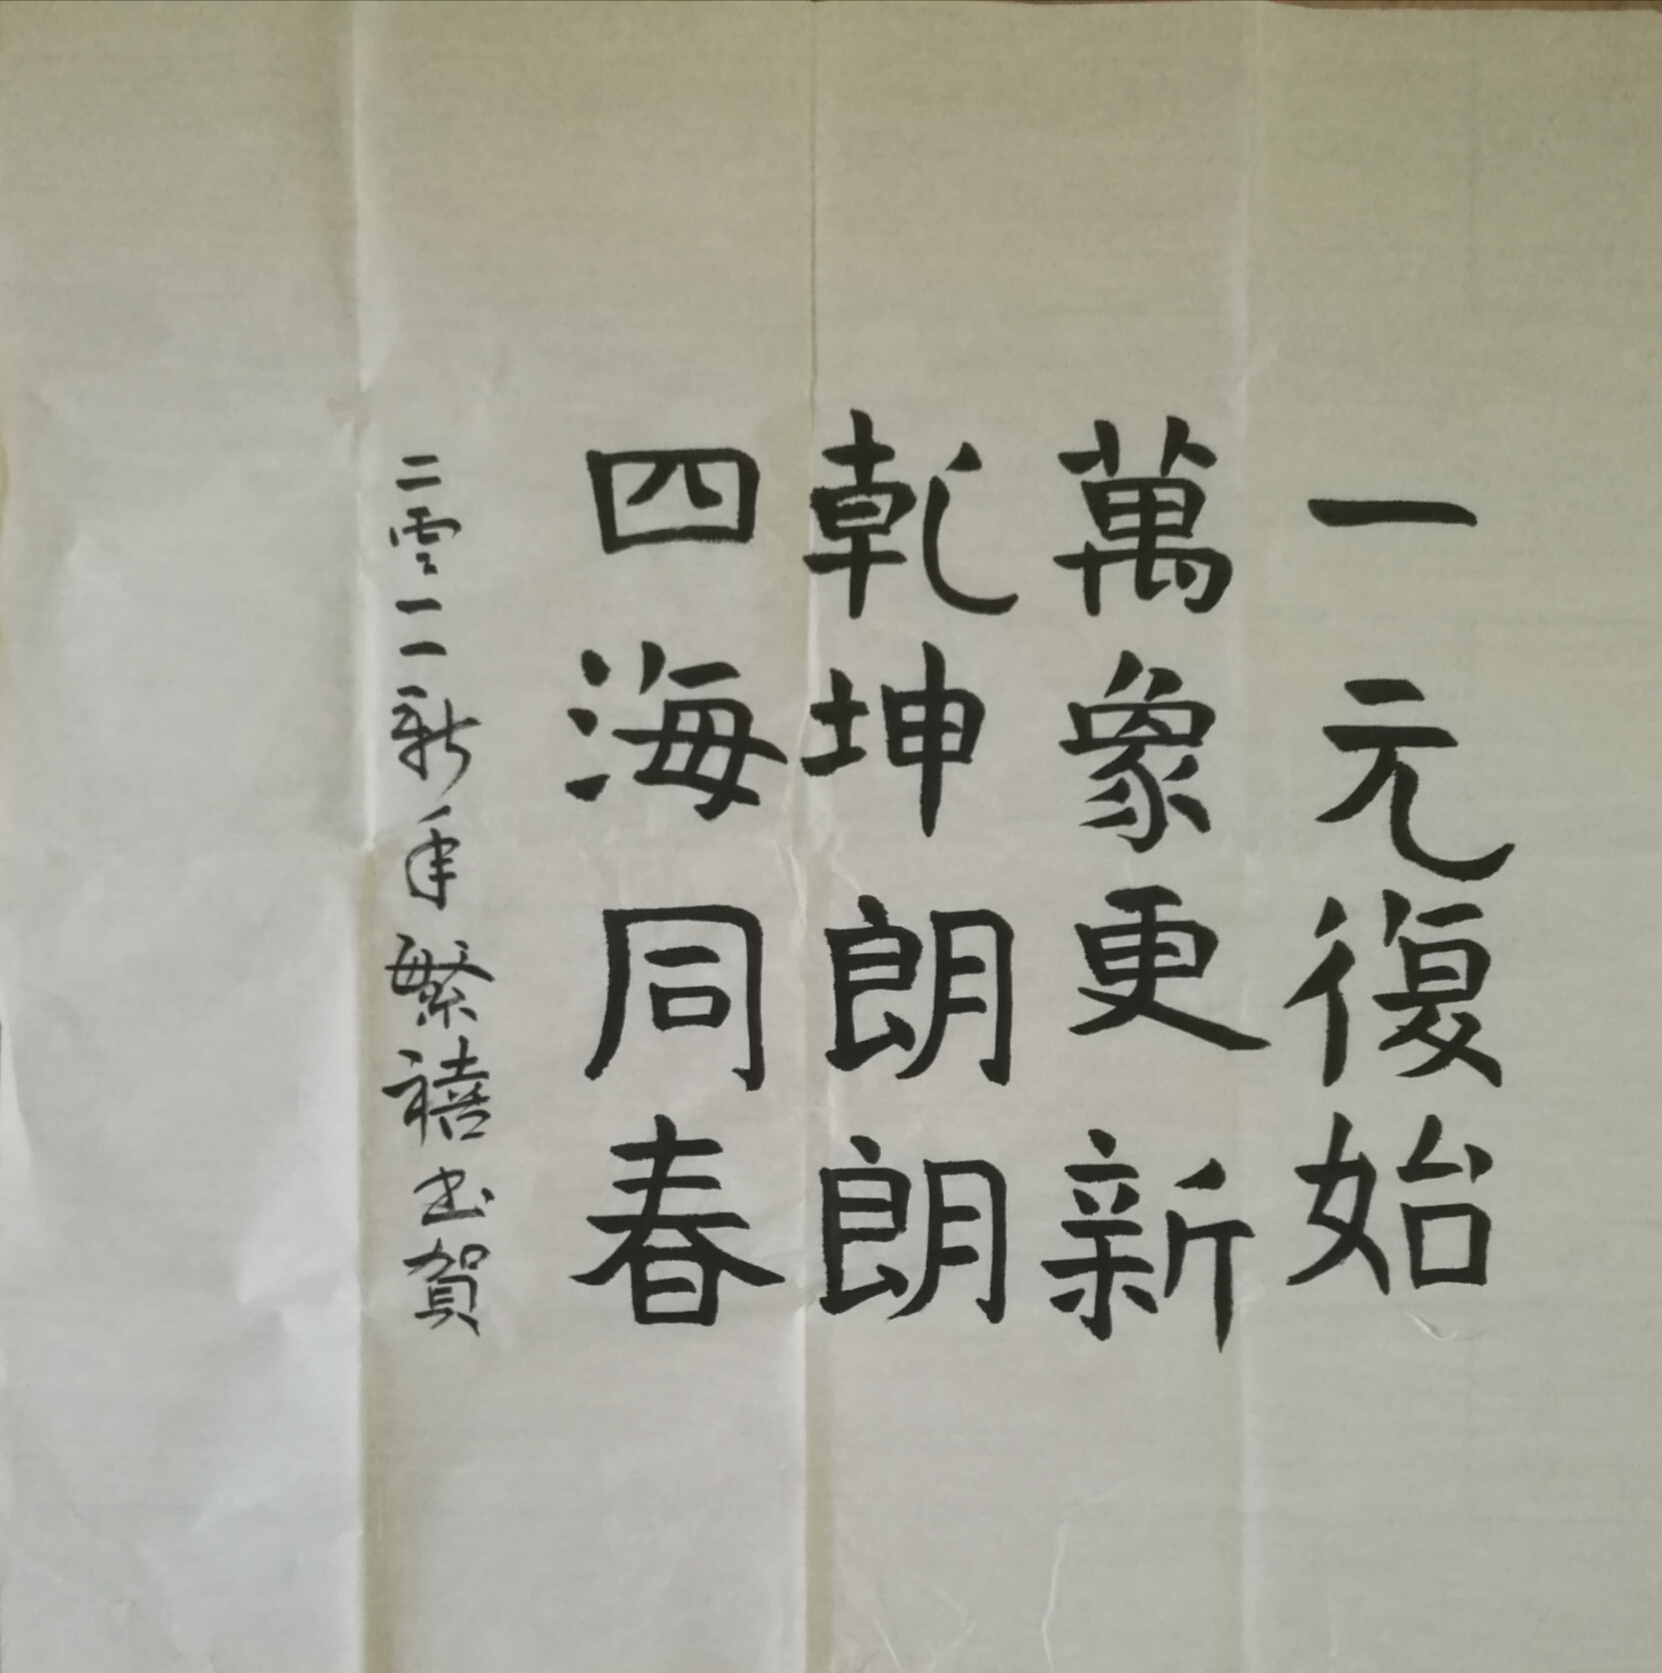 一元復始
萬象更新
乾坤朗朗
四海同春
二零一一新年繁禧书賀